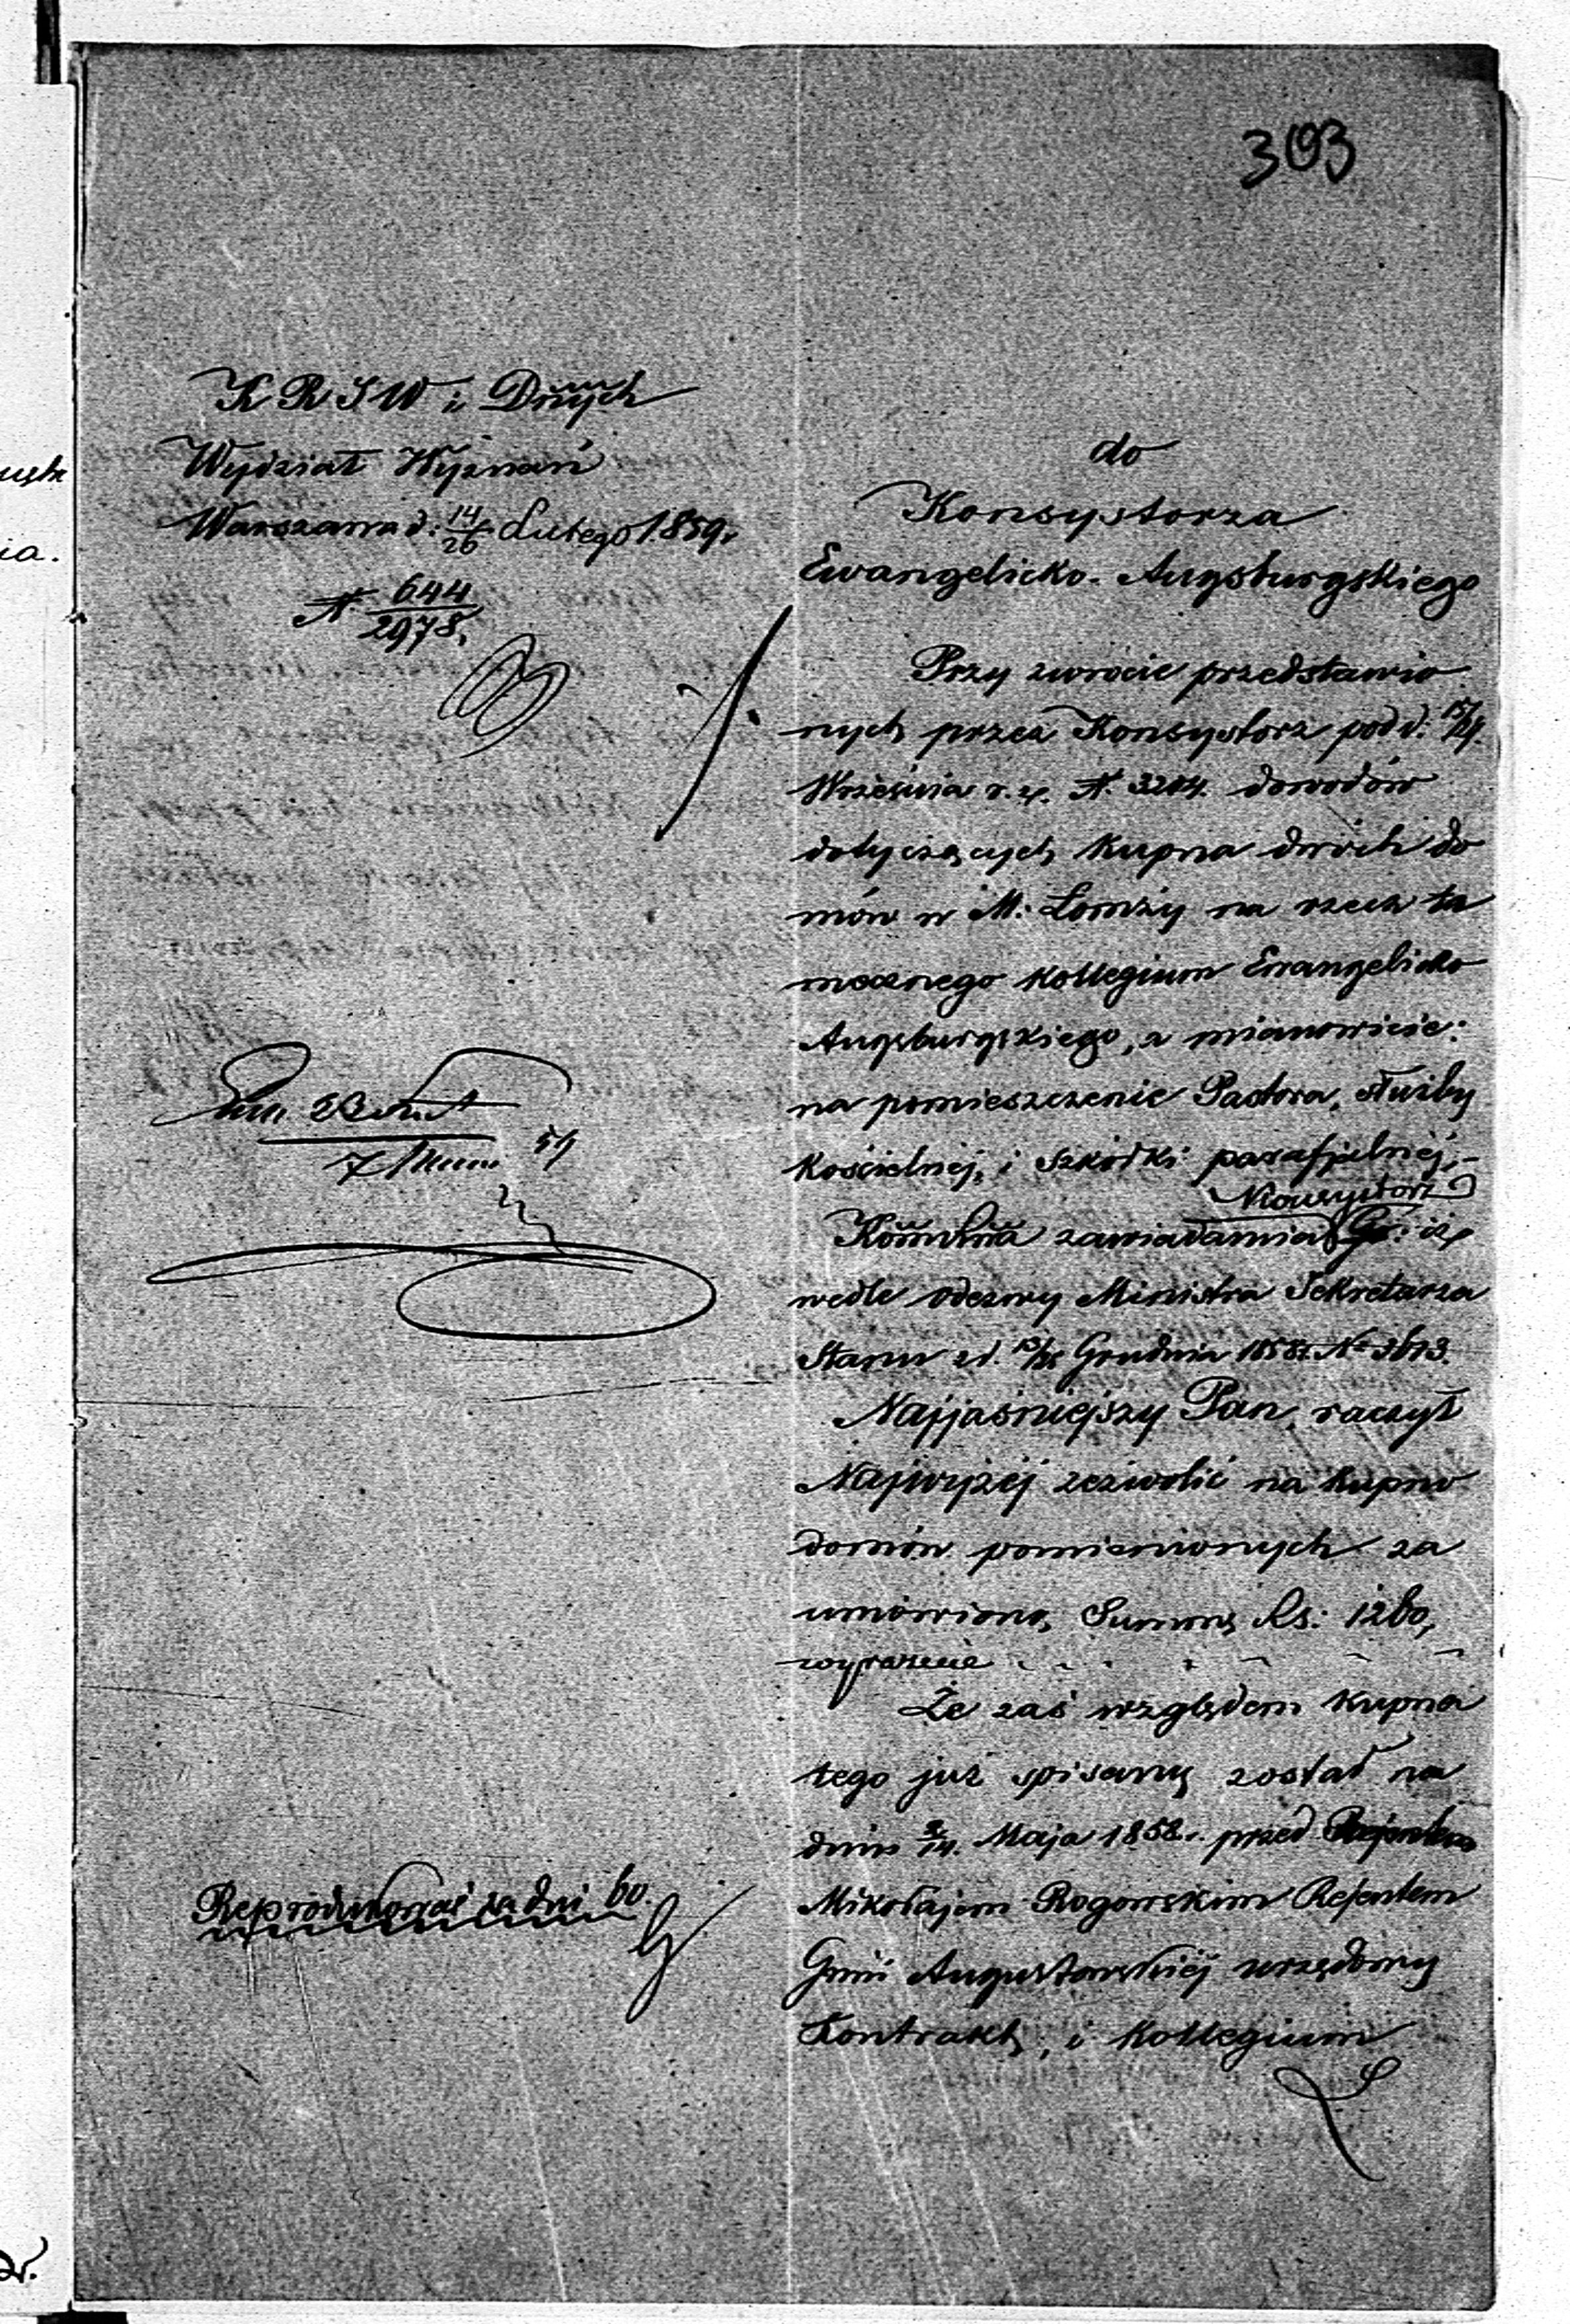 303
K R S W i Dnych
Wydział Wyznań
Warszawa d: 14/26 Lutego 1859r.
N 644/2978.
do
Konsystorza
Ewangelicko-Augsburgskiego
Przy zwrócie przedstawio
nych przez Konsystorz pod d. 15/27
Września r. z. N. 3204. dowodów
dotyczących kupna dwóch do
mów w M: Łomży na rzecz ta
mecznego kollegium Ewangelicko
Augsburgskiego, a mianowicie:
na pomieszczenie Pastora, służby
kościelnej, i szkółki parafjalnéj,-
Konsystorz
zawiadamia iż
wedle odezwy Ministra Sekretarza
Stanu z d. 13/25 Grudnia 1858r. No 3613.
Najjaśniejszy Pan, raczył
Najwyżéj zezwolić na kupno
domów pomienionych za
umówioną Summę Rs: 1260,
wyraźnie
Że zaś względem kupna
tego już spisany został na
dniu 2/14. Maja 1858r. przed
Mikołajem Rogowskim Rejentem
Gnii Augustowskiéj urzędowy
Kontrakt, i kollegium
Reprodukować za dni 60.